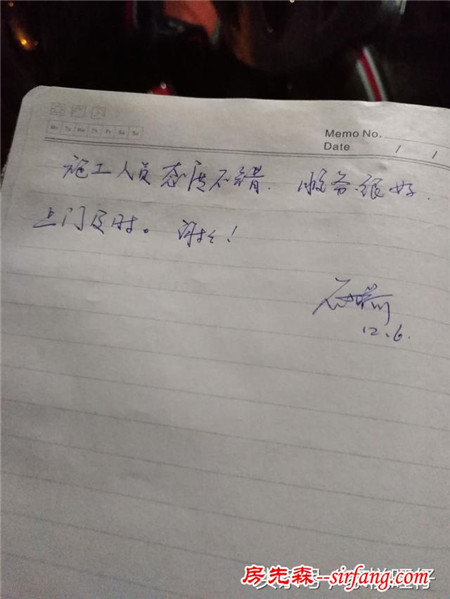 Mo Tu We Th Fr Sa Su
Memo No.
Date / /
施工人员态度不错. 服务很好.
上门及时。 谢谢!
12.6.
房先森--sirfang.com